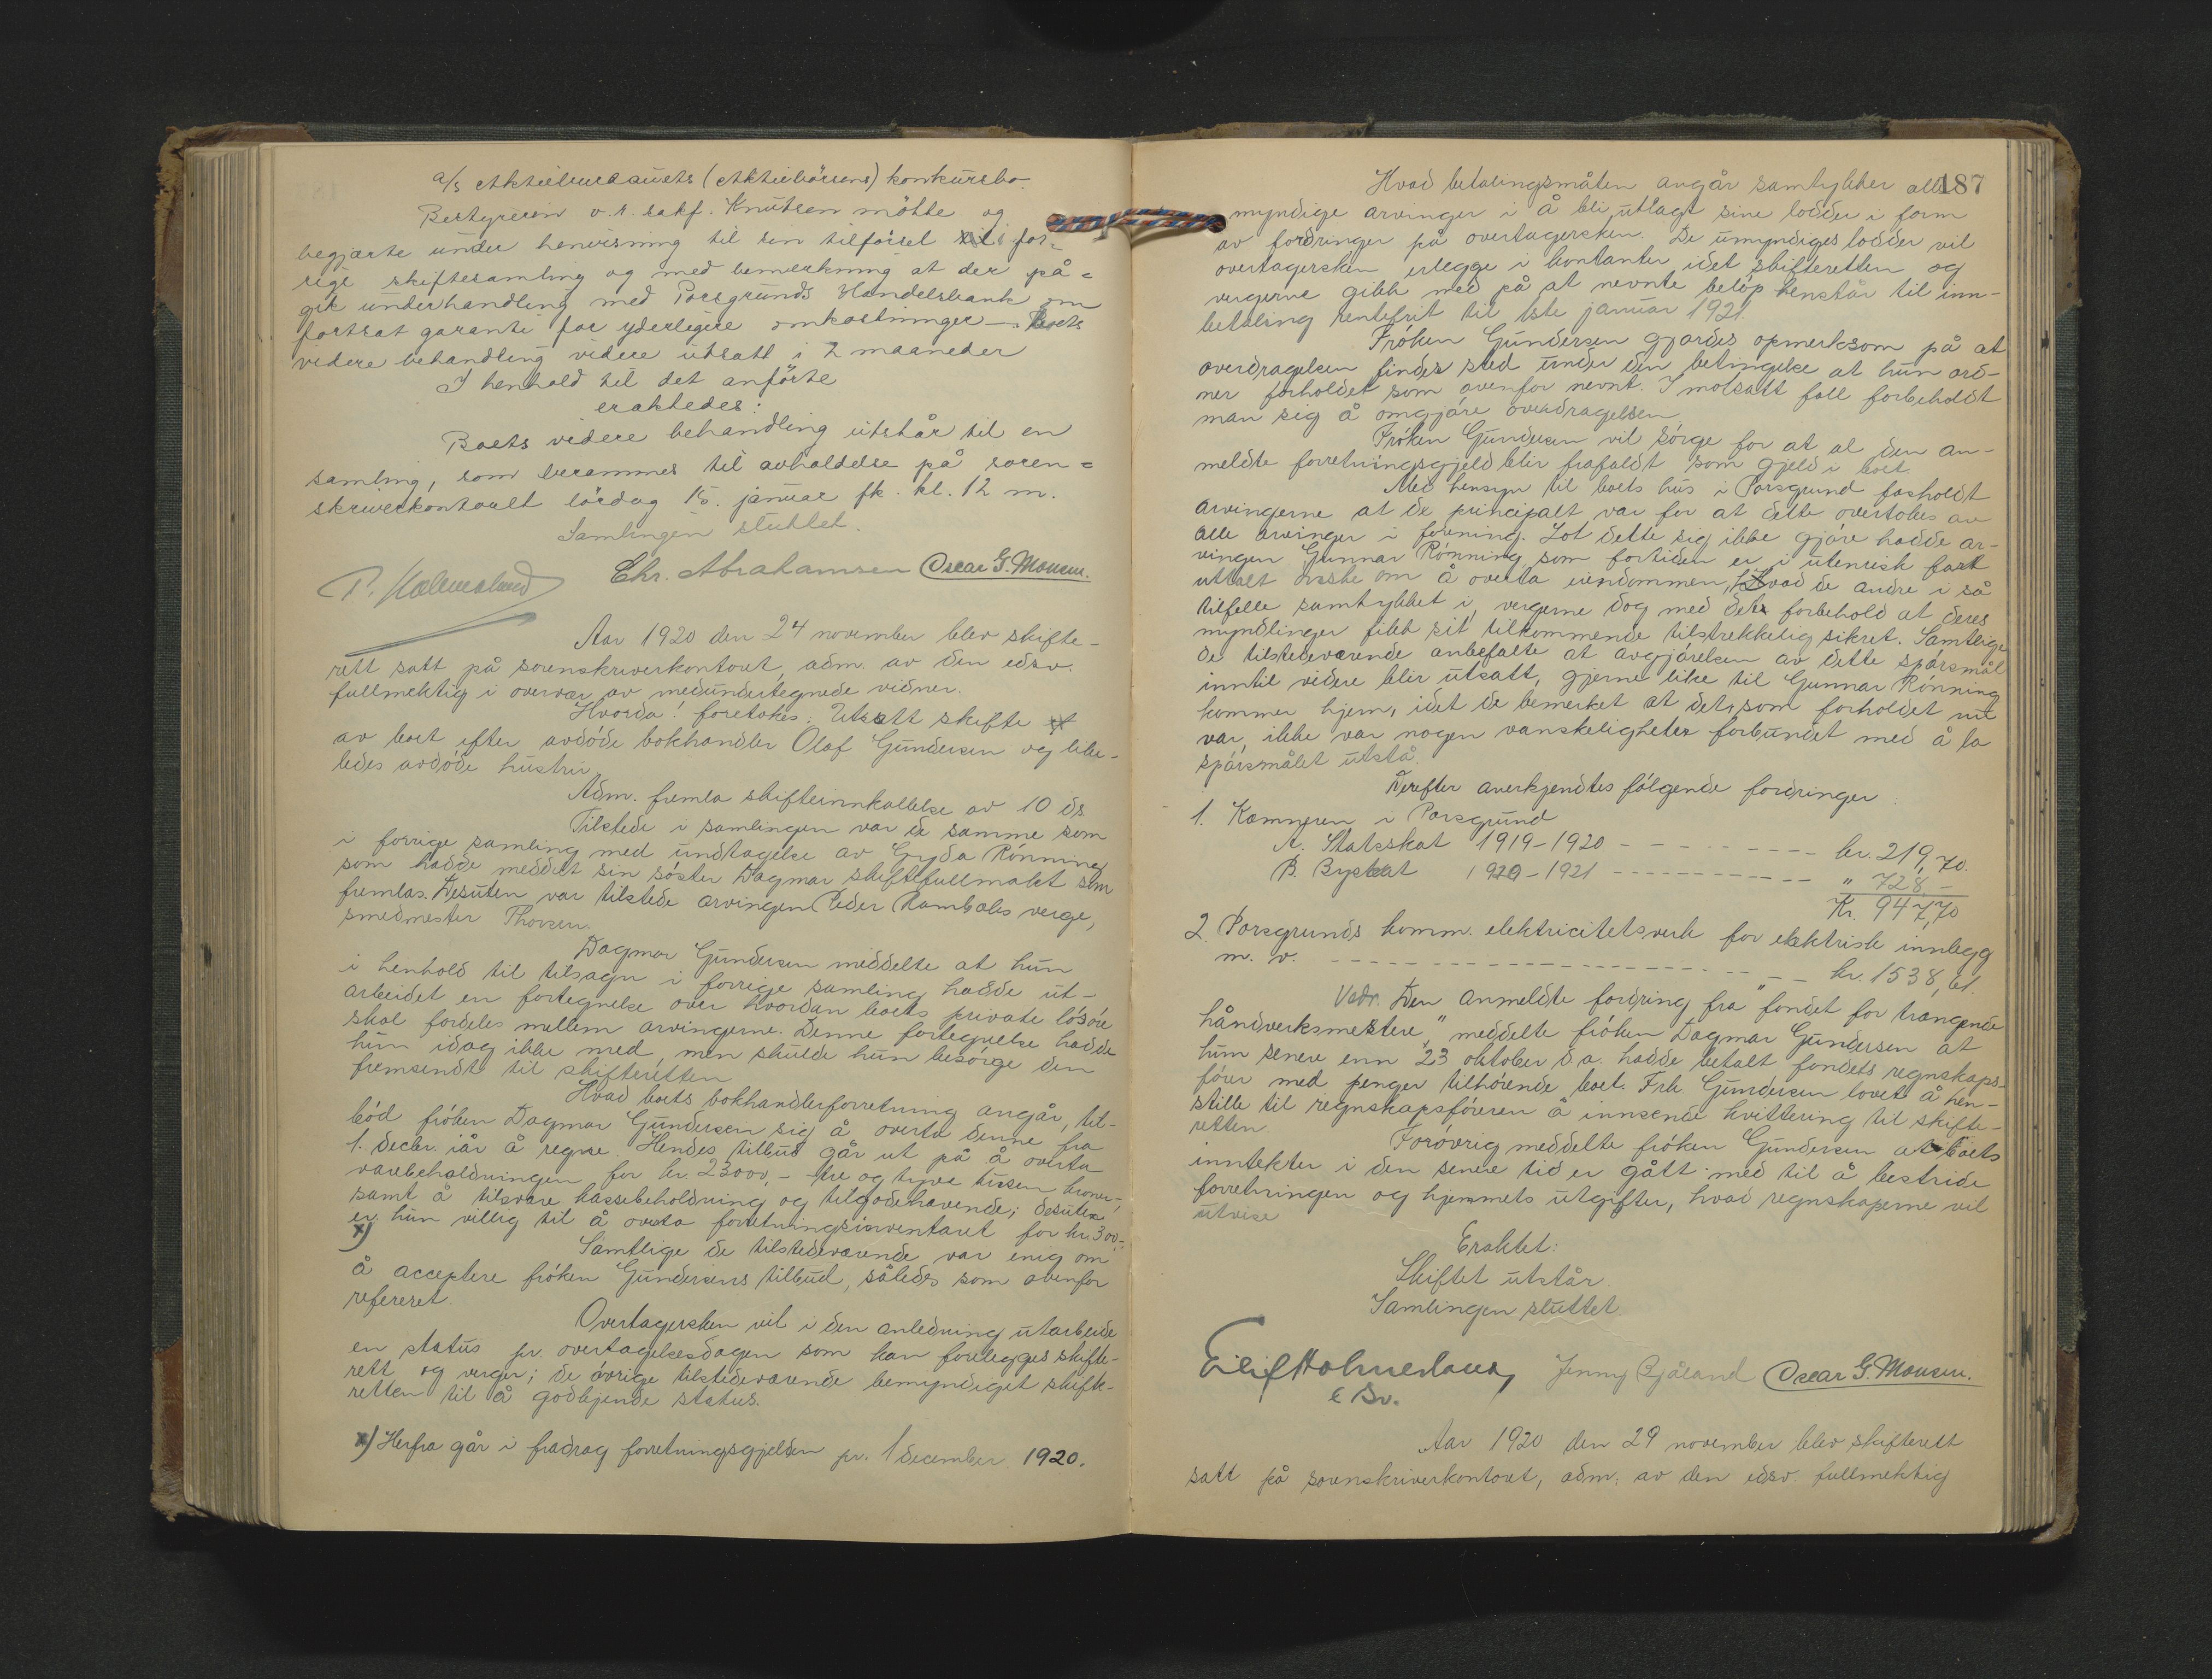 a/s Aktiebureauets (Aktiebörsens) konkursbo.
Bestyreren o.r. sakf. Knutsen mötte og
begjærte under henvisning til sin tilförsel i for-
rige skiftesamling og med bemerkning at der på-
gik underhandling med Porsgrunds Handelsbank om
fortsat garanti for yderligere omkostninger — boets
videre behandling videre utsatt i 2 maaneder
I henhold til det anförte
eraktedes:
Boets videre behandling utstår til en
samling, som berammes til avholdelse på soren-
skriverkontoret lördag 15. januar fk. kl. 12 m.
Samlingen sluttet.
P. Holmesland Chr. Abrahamsen Oscar G. Monsen.
Aar 1920 den 24 november blev skifte-
rett satt på sorenskriverkontoret, adm. av den edsv.
fullmektig i overvær av medundertegnede vidner.
Hvorda! foretokes: Utsatt skifte
av boet efter avdöde bokhandler Olaf Gundersen og like-
ledes avdöde hustru
Adm. fremla skifteinnkallelse av 10 ds
Tilstede i samlingen var de samme som
i forrige samling med undtagelse av Gyda Rönning
som hadde meddelt sin söster Dagmar skiftefullmakt som
fremlas. Desuten var tilstede arvingen Peder Rambøls verge,
smedmester Thorsen.
Dagmar Gundersen meddelte at hun
i henhold til tilsagn i forrige samling hadde ut-
arbeidet en fortegnelse over hvordan boets private lösöre
skal fordeles mellem arvingerne. Denne fortegnelse hadde
hun idag ikke med, men skulde hun besörge den
fremsendt til skifteretten
Hvad boets bokhandlerforretning angår, til-
böd fröken Dagmar Gundersen sig å overta denne fra
1. decbr. iår å regne. Hendes tilbud går ut på å overta
varebeholdningen for kr 23000,- tre og tyve tusen kroner,
samt å tilsvare kassebeholdning og tilgodehavende; desuten
er hun villig til å overta forretningsinventaret for kr. 300,-
x)
Samtlige de tilstedeværende var enig om
å acceptere fröken Gundersens tilbud, således som ovenfor
referert.
Overtagersken vil i den anledning utarbeide
en status pr. overtagelsesdagen som kan forelegges skifte-
rett og verger; de övrige tilstedeværende bemyndiget skifte-
retten til å godkjende status.
x) Herfra går i fradrag forretningsgjelden pr. 1 december 1920.
187
Hvad betalingsmåten angår samtykker alle
myndige arvinger i å bli utlagt sine lodder i form
av fordringer på overtagersken. De umyndiges lodder vil
overtagersken erlegge i kontanter idet skifteretten og
vergerne gikk med på at nevnte belöp henstår til inn-
betaling rentefrit til 1ste januar 1921
Fröken Gundersen gjordes opmerksom på at
overdragelsen finder sted under den betingelse at hun ord-
ner forholdet som ovenfor nevnt. I motsatt fall forbeholdt
man sig å omgjöre overdragelsen
Fröken Gundersen vil sörge for at al den an-
meldte forretningsgjeld blir frafaldt som gjeld i boet.
Med hensyn til boets hus i Porsgrund fasholdt
arvingerne at de principalt var for at dette overtokes av
alle arvinger i forening. Lot dette sig ikke gjöre hadde ar-
vingen Gunnar Rönning som fortiden er i utenrisk fart
uttalt önske om å overta eiendommen, hvad de andre i så
tilfelle samtykket i, vergerne dog med det forbehold at deres
myndlinger fikk sit tilkommende tilstrekkelig sikret. Samtlige
de tilstedeværende anbefalte at avgjörelsen av dette spörsmål
inntil videre blir utsatt, gjerne like til Gunnar Rönning
kommer hjem, idet de bemerket at det, som forholdet nu
var, ikke var nogen vanskeligheter forbundet med å la
spörsmålet utstå.
Derefter anerkjendtes fölgende fordringer:
1. Kæmneren i Porsgrund
A. Statsskat 1919-1920 - - - - - - - - - kr. 219,70.
B. Byskat 1920-1921 - - - - - - - - - - - " 728 -
Kr. 947,70
2. Porsgrunds komm. elektricitetsverk for elektrisk innlegg
m. v. - - - - - - - - - - - - - - - - - - - - kr. 1538,61.
Vedr. Den anmeldte fordring fra "fondet for trængende
håndverksmestere" meddelte fröken Dagmar Gundersen at
hun senere enn 23 oktober d a. hadde betalt fondets regnskaps-
förer med penger tilhörende boet. Frk Gundersen lovet å hen-
stille til regnskapsföreren å innsende kvittering til skifte-
retten.
Forövrig meddelte fröken Gundersen at boets
inntekter i den senere tid er gått med til å bestride
forretningen og hjemmets utgifter, hvad regnskaperne vil
utvise
Eraktet:
Skiftet utstår.
Samlingen sluttet.
Eilif Holmesland Jenny Bjåland Oscar G. Monsen.
e Sv.
Aar 1920 den 29 november blev skifterett
satt på sorenskriverkontoret, adm. av den edsv. fullmektig